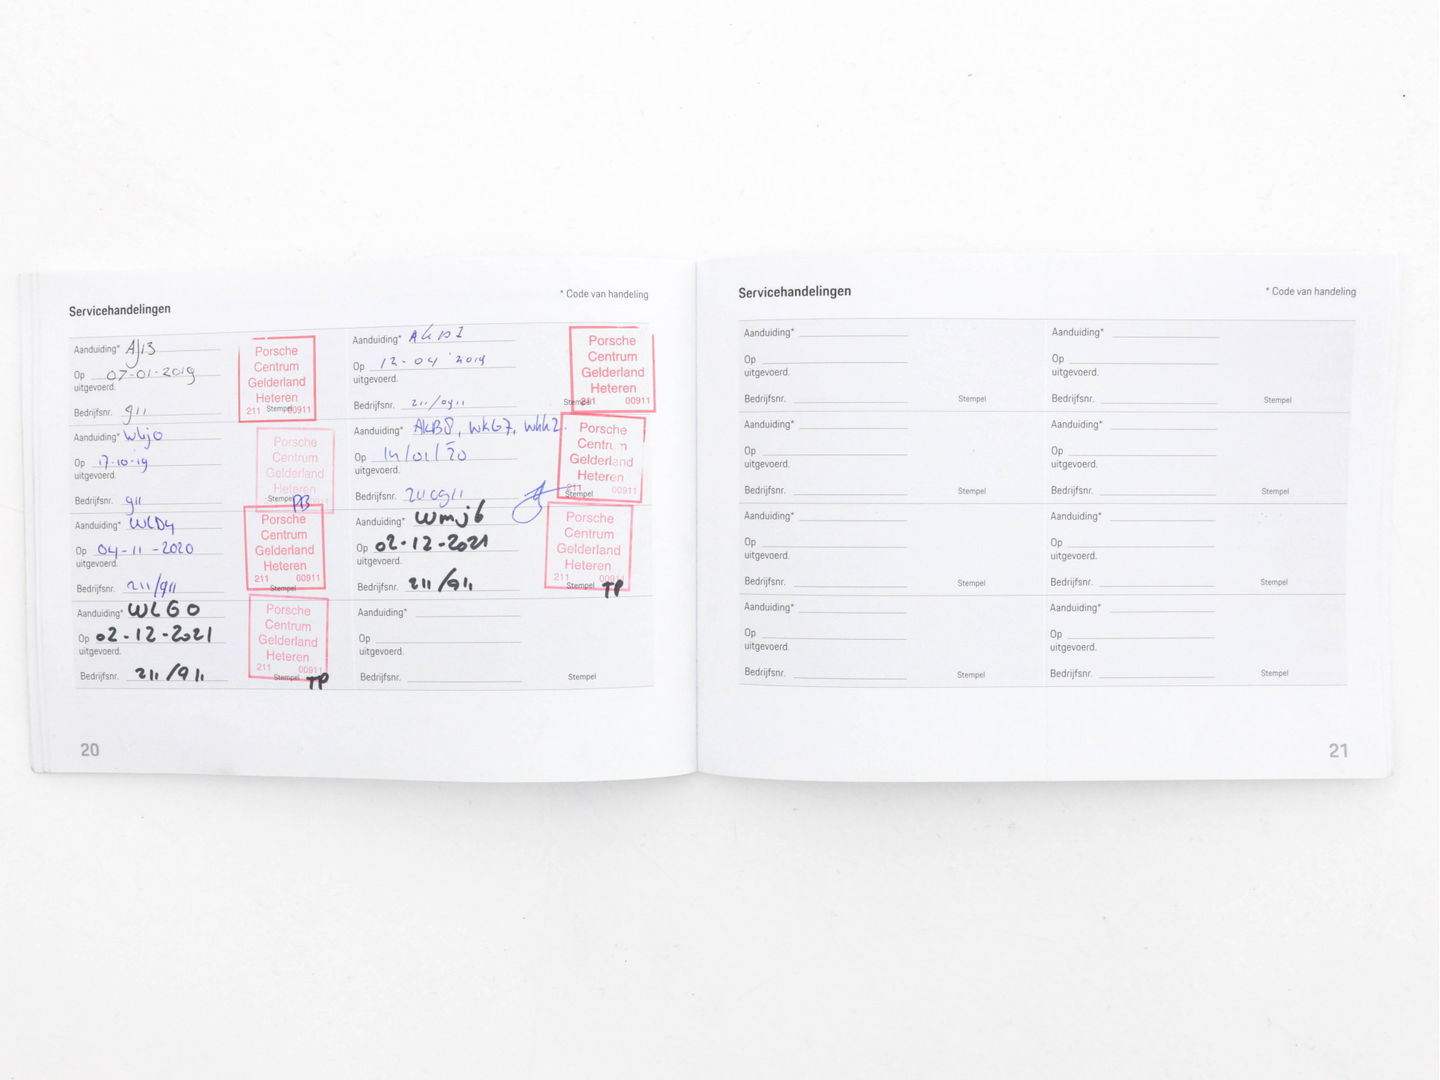 Servicehandelingen
* Code van handeling
Aanduiding* AJ13
Op 07-01-2019
uitgevoerd.
Bedrijfsnr. 911
Porsche
Centrum
Gelderland
Heteren
211 00911
Stempel
Aanduiding*
Op 12-04-2019
uitgevoerd.
Bedrijfsnr. 211/0911
Porsche
Centrum
Gelderland
Heteren
211 00911
Stempel
Aanduiding* WHJ0
Op 17-10-19
uitgevoerd.
Bedrijfsnr. 911
Porsche
Centrum
Gelderland
Heteren
Stempel
PB
Aanduiding* AKB8, WKG7, WKH2.
Op 14/01/20
uitgevoerd.
Bedrijfsnr.
Porsche
Centrum
Gelderland
Heteren
211 00911
Stempel
Aanduiding* WLD4
Op 04-11-2020
uitgevoerd.
Bedrijfsnr. 211/911
Porsche
Centrum
Gelderland
Heteren
211 00911
Stempel
Aanduiding* WMJ6
Op 02-12-2021
uitgevoerd.
Bedrijfsnr. 211/911
Porsche
Centrum
Gelderland
Heteren
211 00911
Stempel TP
Aanduiding* WLG0
Op 02-12-2021
uitgevoerd.
Bedrijfsnr. 211/911
Porsche
Centrum
Gelderland
Heteren
211 00911
Stempel TP
Aanduiding*
Op
uitgevoerd.
Bedrijfsnr.
Stempel
20
Servicehandelingen
* Code van handeling
Aanduiding*
Op
uitgevoerd.
Bedrijfsnr.
Stempel
Aanduiding*
Op
uitgevoerd.
Bedrijfsnr.
Stempel
Aanduiding*
Op
uitgevoerd.
Bedrijfsnr.
Stempel
Aanduiding*
Op
uitgevoerd.
Bedrijfsnr.
Stempel
Aanduiding*
Op
uitgevoerd.
Bedrijfsnr.
Stempel
Aanduiding*
Op
uitgevoerd.
Bedrijfsnr.
Stempel
Aanduiding*
Op
uitgevoerd.
Bedrijfsnr.
Stempel
Aanduiding*
Op
uitgevoerd.
Bedrijfsnr.
Stempel
21